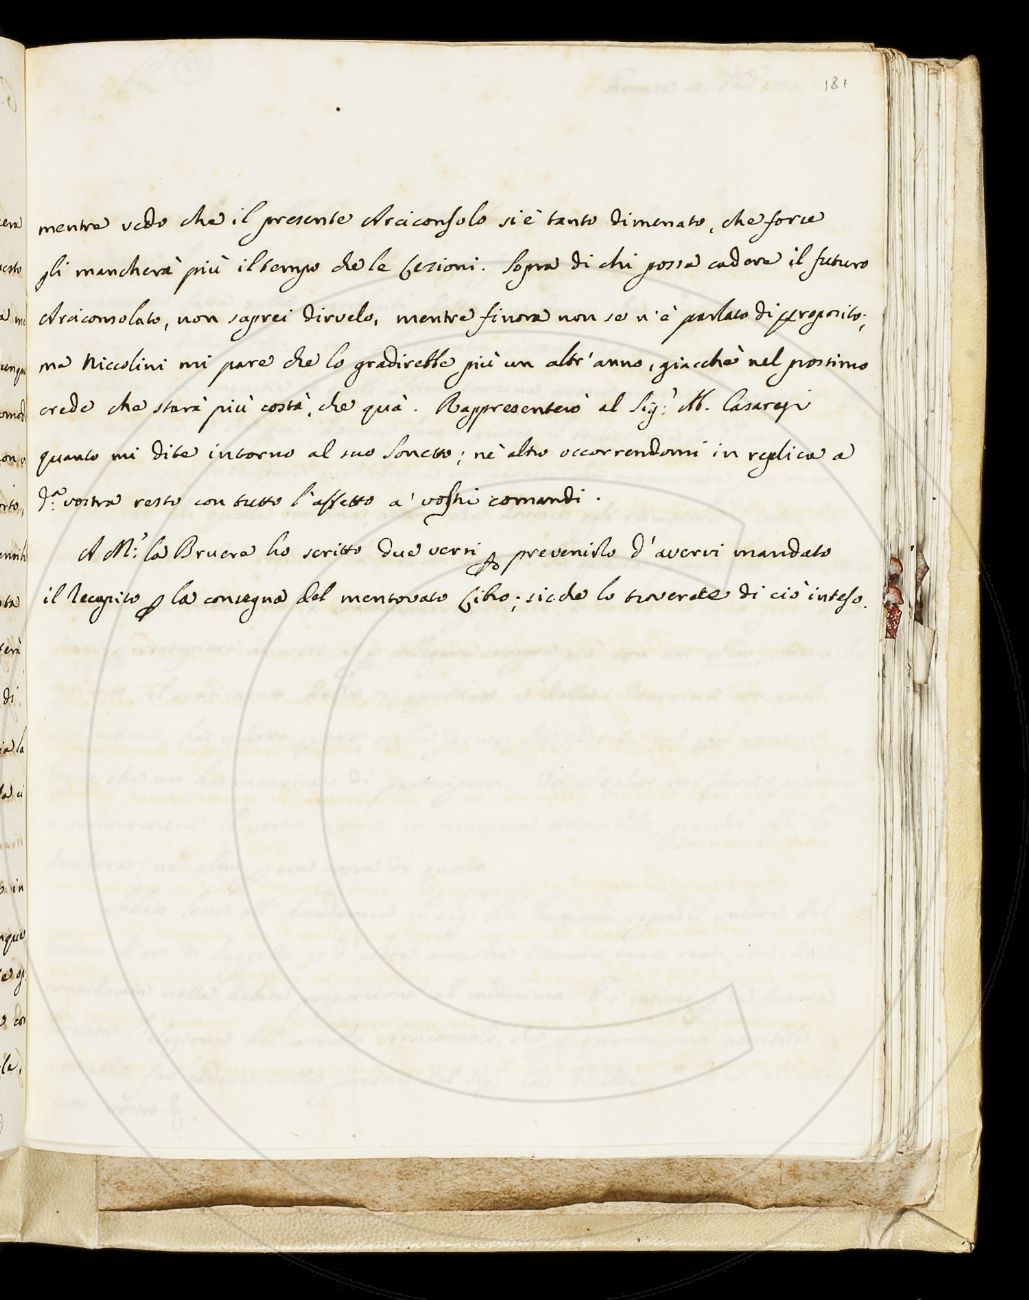 181
mentre vedo che il presente Arciconsolo si è tanto dimenato, che forse
gli mancherà più il tempo che le Lezioni. Sopra di chi possa cadere il futuro
Arciconsolato, non saprei dirvelo, mentre finora non se n'è parlato di proposito;
ma Niccolini mi pare che lo gradirebbe più un altr'anno, giacchè nel prossimo
crede che starà più costà, che quà. Rappresenterò al Sig.r M. Casaregi
quanto mi dite intorno al suo Sonetto; nè altro occorrendomi in replica a
d.a vostra resto con tutto l'affetto a' vostri comandi.
A M.r la Bruere ho scritto due versi p prevenirlo d'avervi mandato
il Recapito p la consegna del mentovato Libro; sicche lo troverete di ciò inteso.